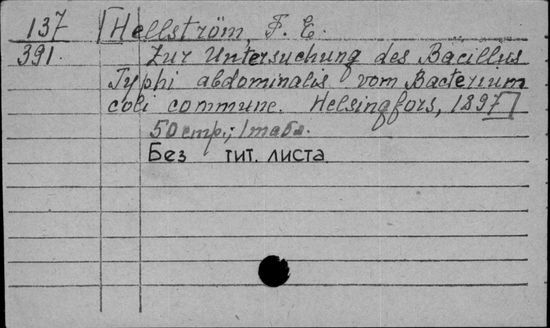 137 Hellström, F. E.
391. Zur Untersuchung des Bacillus
Typhi abdominalis vom Bacterium
coli commune. Helsingfors, 1897]
50 стр.; 1 табл.
Без тит. листа